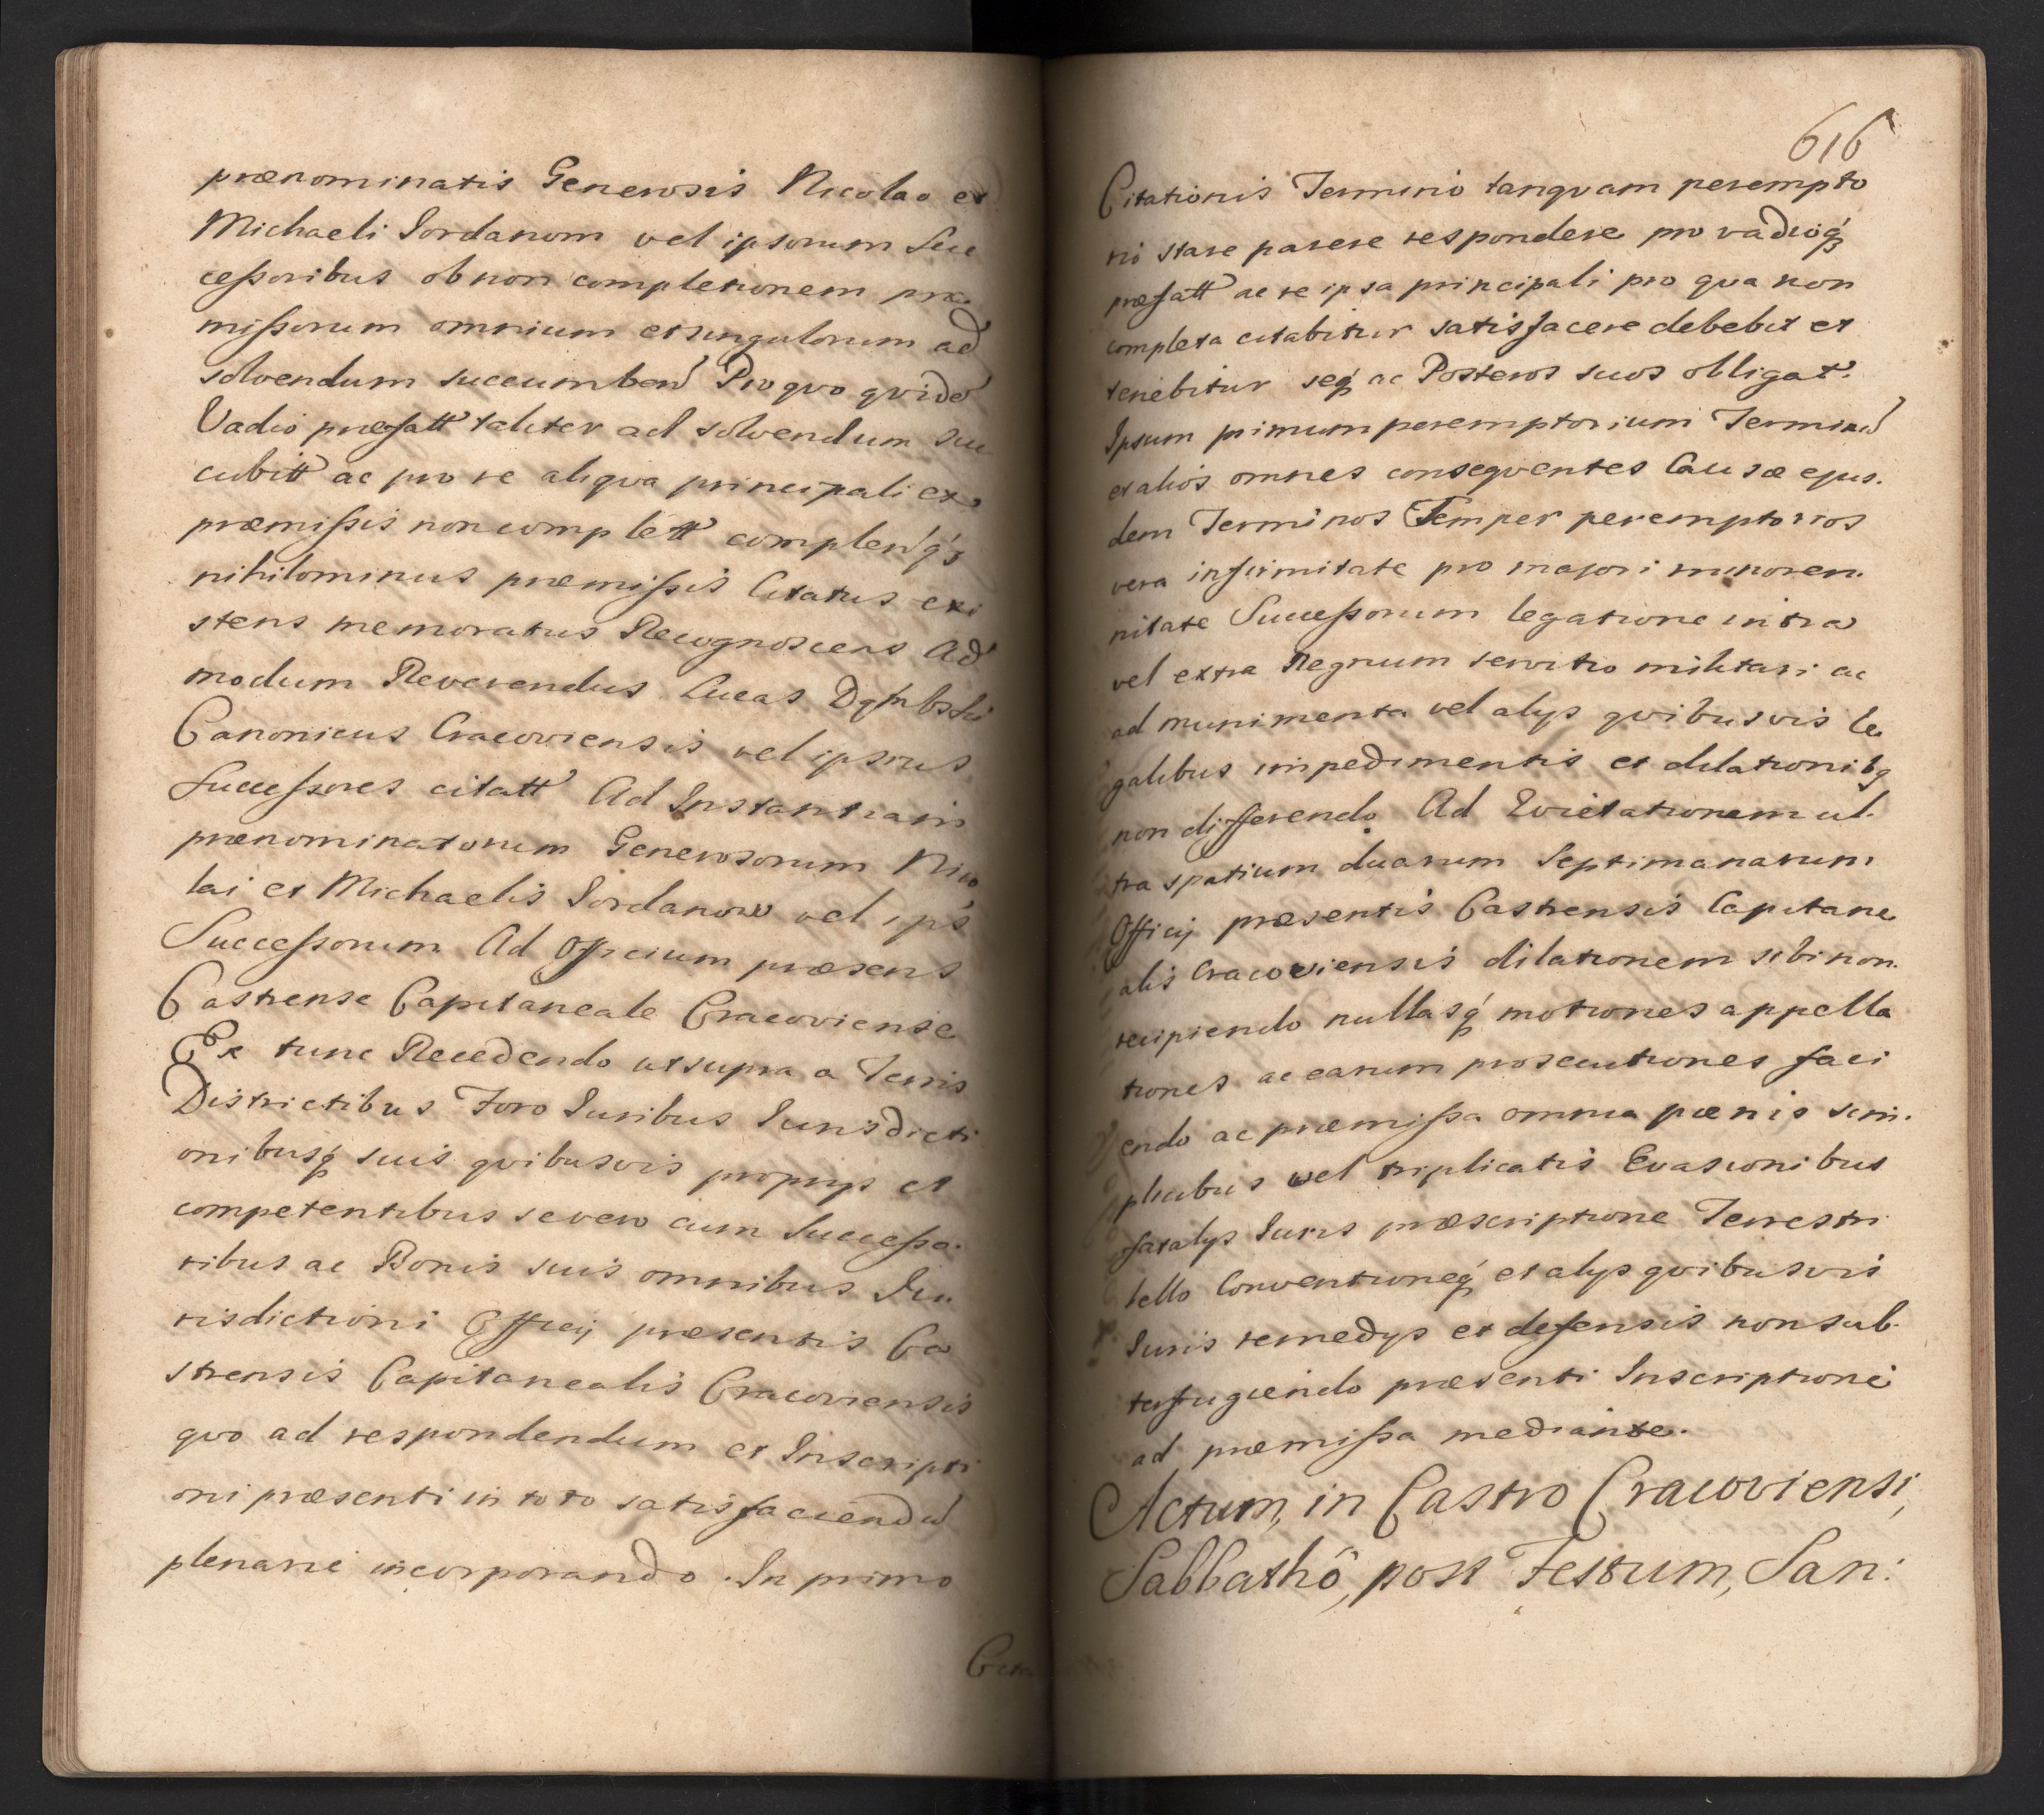 prænominatis Generosis Nicolao et
Michaeli Jordanom vel ipsorum Suc
cessoribus ob non completionem præ
missorum omnium et singulorum ad
solvendum succumben Pro quo qvidē
Vadio præfatt taliter ad solvendum suc
cubitt ac pro re aliqva principali ex
præmissis non complett complenq́ꝫ
nihilominus præmissis Citatus exi
stens memoratus Recognoscens Ad
modum Reverendus Lucas Dąmbski
Canonicus Cracoviensis vel ipsius
Successores citatt Ad Instantiam
prænominatorum Generosorum Nico
lai et Michaelis Jordanow vel ips
Successorum Ad Officium præsens
Castrense Capitaneale Cracoviense
Ex tunc Recedendo ut supra a Terris
Districtibus Foro Juribus Jurisdicti
onibusq́ suis qvibusvis proprys et
competentibus severo cum Successo.
ribus ac Bonis suis omnibus Ju.
risdictioni Officij præsentis Ca
strensis Capitanealis Cracoviensis
qvo ad respondendum et Inscripti
oni præsenti in toto satisfaciendū
plenarie incorporando. In primo
616
Citationis Termino tanqvam perempto
rio stare parere respondere pro vadioq́ꝫ
præfatt ac re ipsa principali pro qva non
completa citabitur satisfacere debebit et
tenebitur seq́ ac Posteros suos obligat.
Ipsum primum peremptorium Terminū
et alios omnes conseqventes Causæ ejus.
dem Terminos Semper peremptorios
vera infirmitate pro majori minoren.
nitate Successorum legatione intra
vel extra Regnum servitio militari ac
ad munimenta vel alys qvibusvis le
galibus impedimentis et dilationibq
non differendo Ad Evictationem ul.
tra spatium duarum Septimanarum
Officij præsentis Castrensis Capitane
alis Cracoviensis dilationem sibi non.
recipiendo nullasq́ motiones appella
tiones ac earum prosecutiones faci
endo ac præmissa omnia pœnis sim.
plicibus vel triplicatis Evasionibus
fatalys Juris præscriptione Terrestri
bello Conventioneq́ et alys qvibusvis
Juris remedys et defensis non sub.
terfugiendo præsenti Inscriptione
ad præmissa mediante.
Actum, in Castro Cracoviensi,
Sabbathô, post Festum, San: